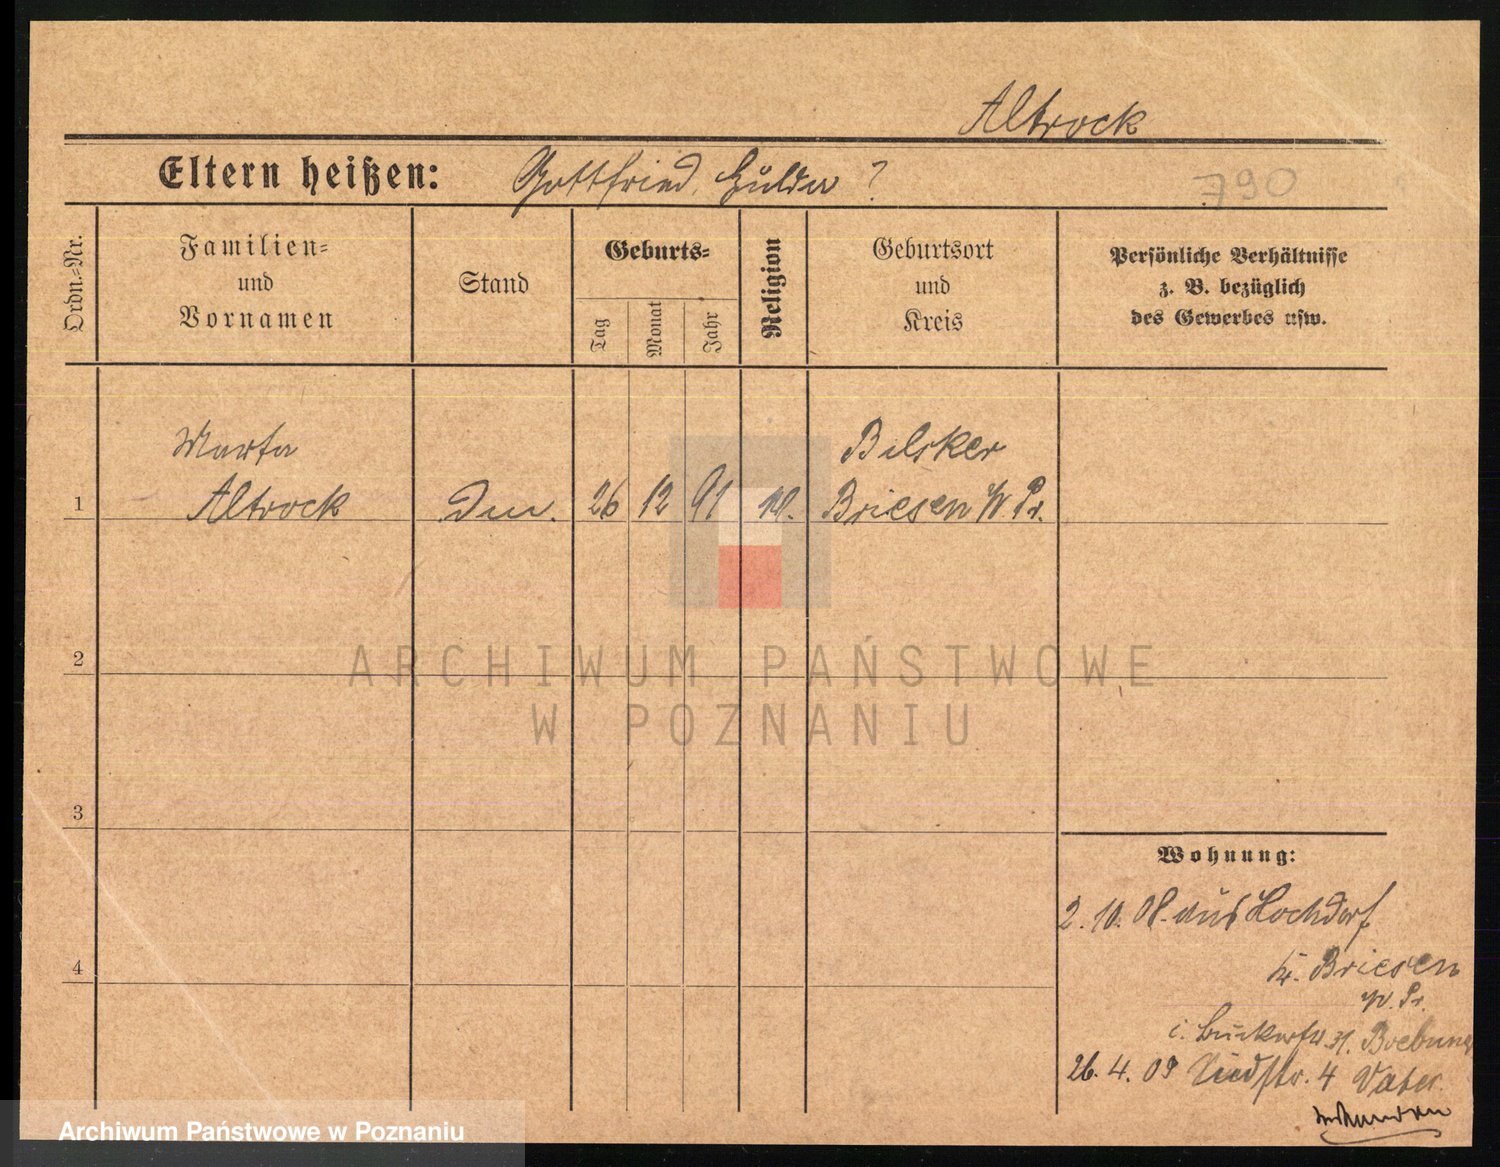 Altrock
Eltern heißen: Gottfried, Hulda ?
790
Ordn.-Nr.
Familien-
und
Vornamen
Stand
Geburts-
Tag
Monat
Jahr
Religion
Geburtsort
und
Kreis
Persönliche Verhältnisse
z. B. bezüglich
des Gewerbes usw.
Marta
Bilsker
1 Altrock 26 12 91 Briesen W. Pr.
2
ARCHIWUM PAŃSTWOWE
W POZNANIU
3
Wohnung:
2. 10. 08. aus Hochdorf
4 Kr. Briesen
W. Pr.
26. 4. 09 4
Archiwum Państwowe w Poznaniu